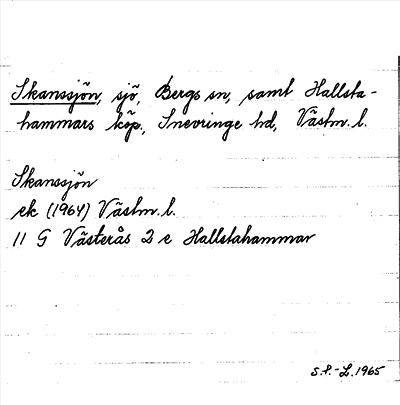 Skanssjön, sjö, Bergs sn, samt Hallsta-
hammars köp., Snevringe hd, Västm. l.
Skanssjön
ek (1964) Västm. l.
11 G Västerås 2 e Hallstahammar
S.P.-L. 1965